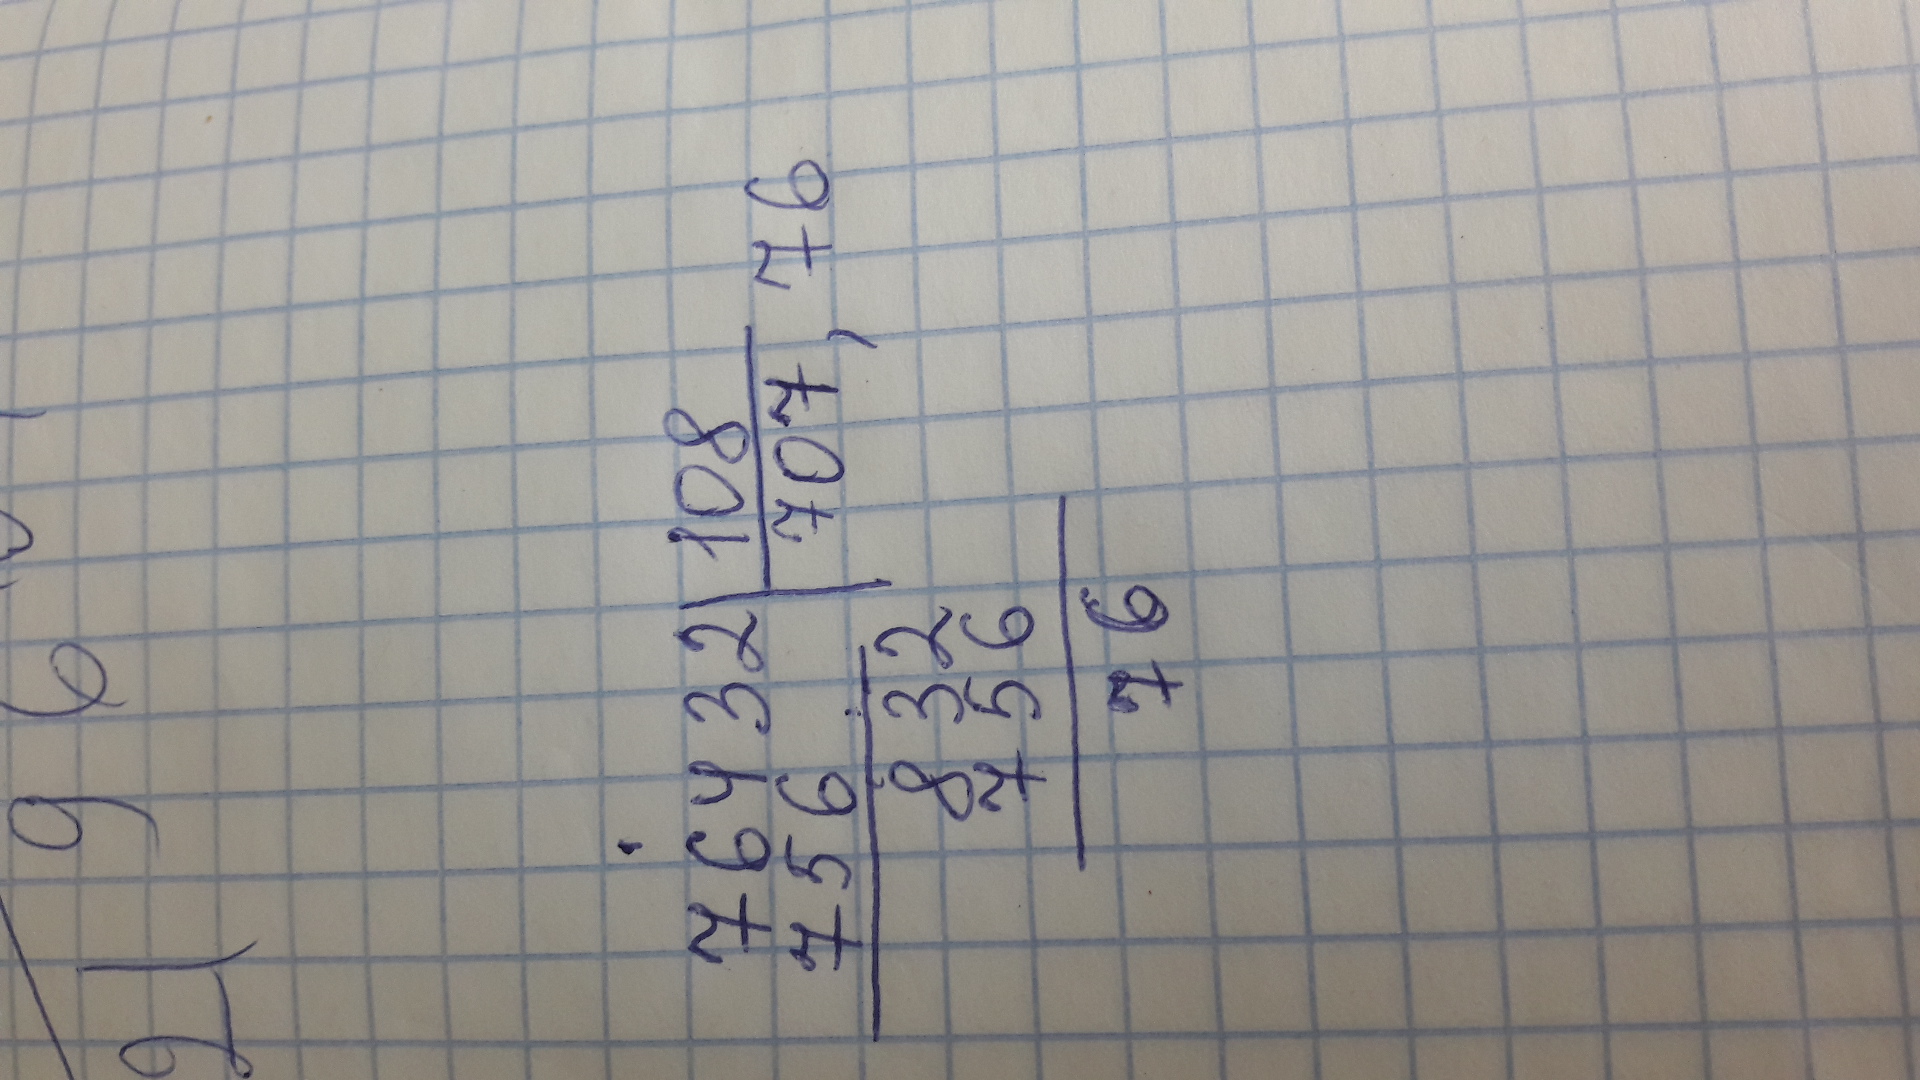 76432 108
756 707,76
832
756
76
296